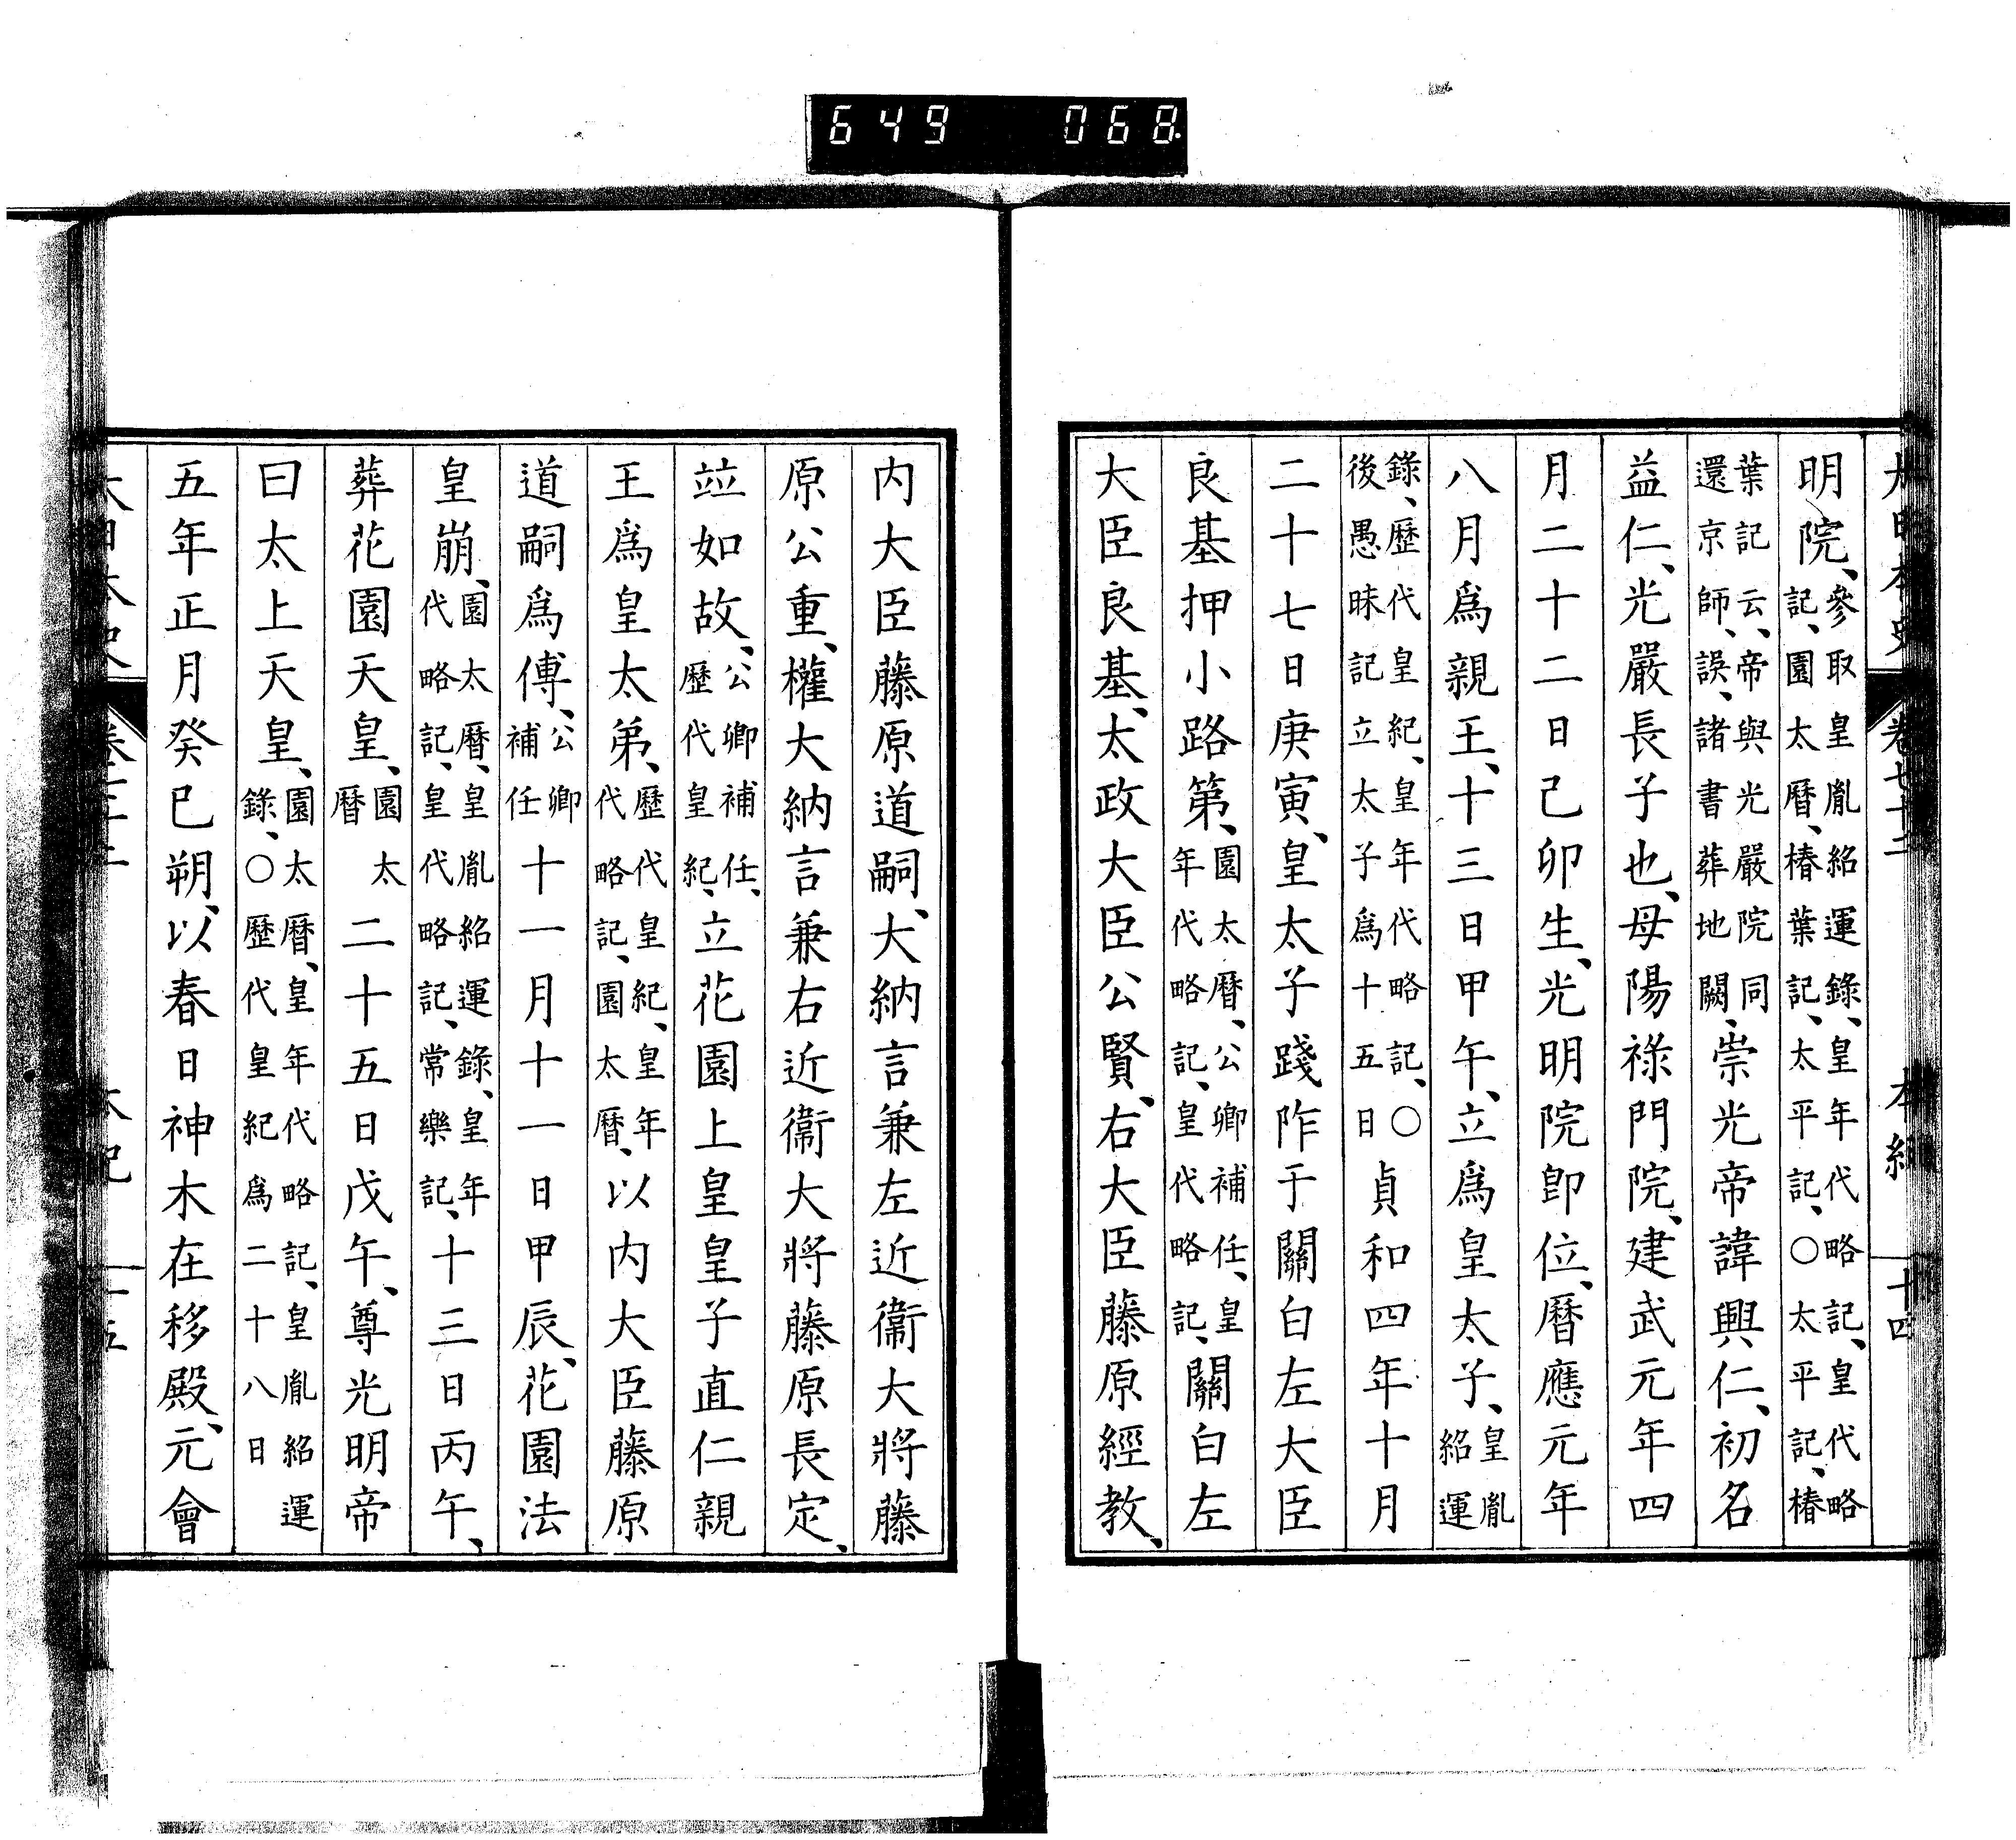 649 068
大日本史 卷七十二 本紀 十四
明院、參取皇胤紹運錄、皇年代略記、皇代略記、園太曆、椿葉記、太平記、〇太平記、椿
葉記云、帝與光嚴院同還京師、誤、諸書葬地闕、崇光帝諱興仁、初名
益仁、光嚴長子也、母陽祿門院、建武元年四
月二十二日己卯生、光明院卽位、曆應元年
八月爲親王、十三日甲午、立爲皇太子、皇胤紹運
錄、歷代皇紀、皇年代略記、〇後愚昧記立太子爲十五日貞和四年十月
二十七日庚寅、皇太子踐阼于關白左大臣
良基押小路第、園太曆、公卿補任、皇年代略記、皇代略記、關白左
大臣良基、太政大臣公賢、右大臣藤原經教、
內大臣藤原道嗣、大納言兼左近衞大將藤
原公重、權大納言兼右近衞大將藤原長定、
竝如故、公卿補任、歷代皇紀、立花園上皇皇子直仁親
王爲皇太弟、歷代皇紀、皇年代略記、園太曆、以內大臣藤原
道嗣爲傅、公卿補任十一月十一日甲辰、花園法
皇崩、園太曆、皇胤紹運錄、皇年代略記、皇代略記、常樂記、十三日丙午、
葬花園天皇、園太曆二十五日戊午、尊光明帝
曰太上天皇、園太曆、皇年代略記、皇胤紹運錄、〇歷代皇紀爲二十八日
五年正月癸巳朔、以春日神木在移殿、元會